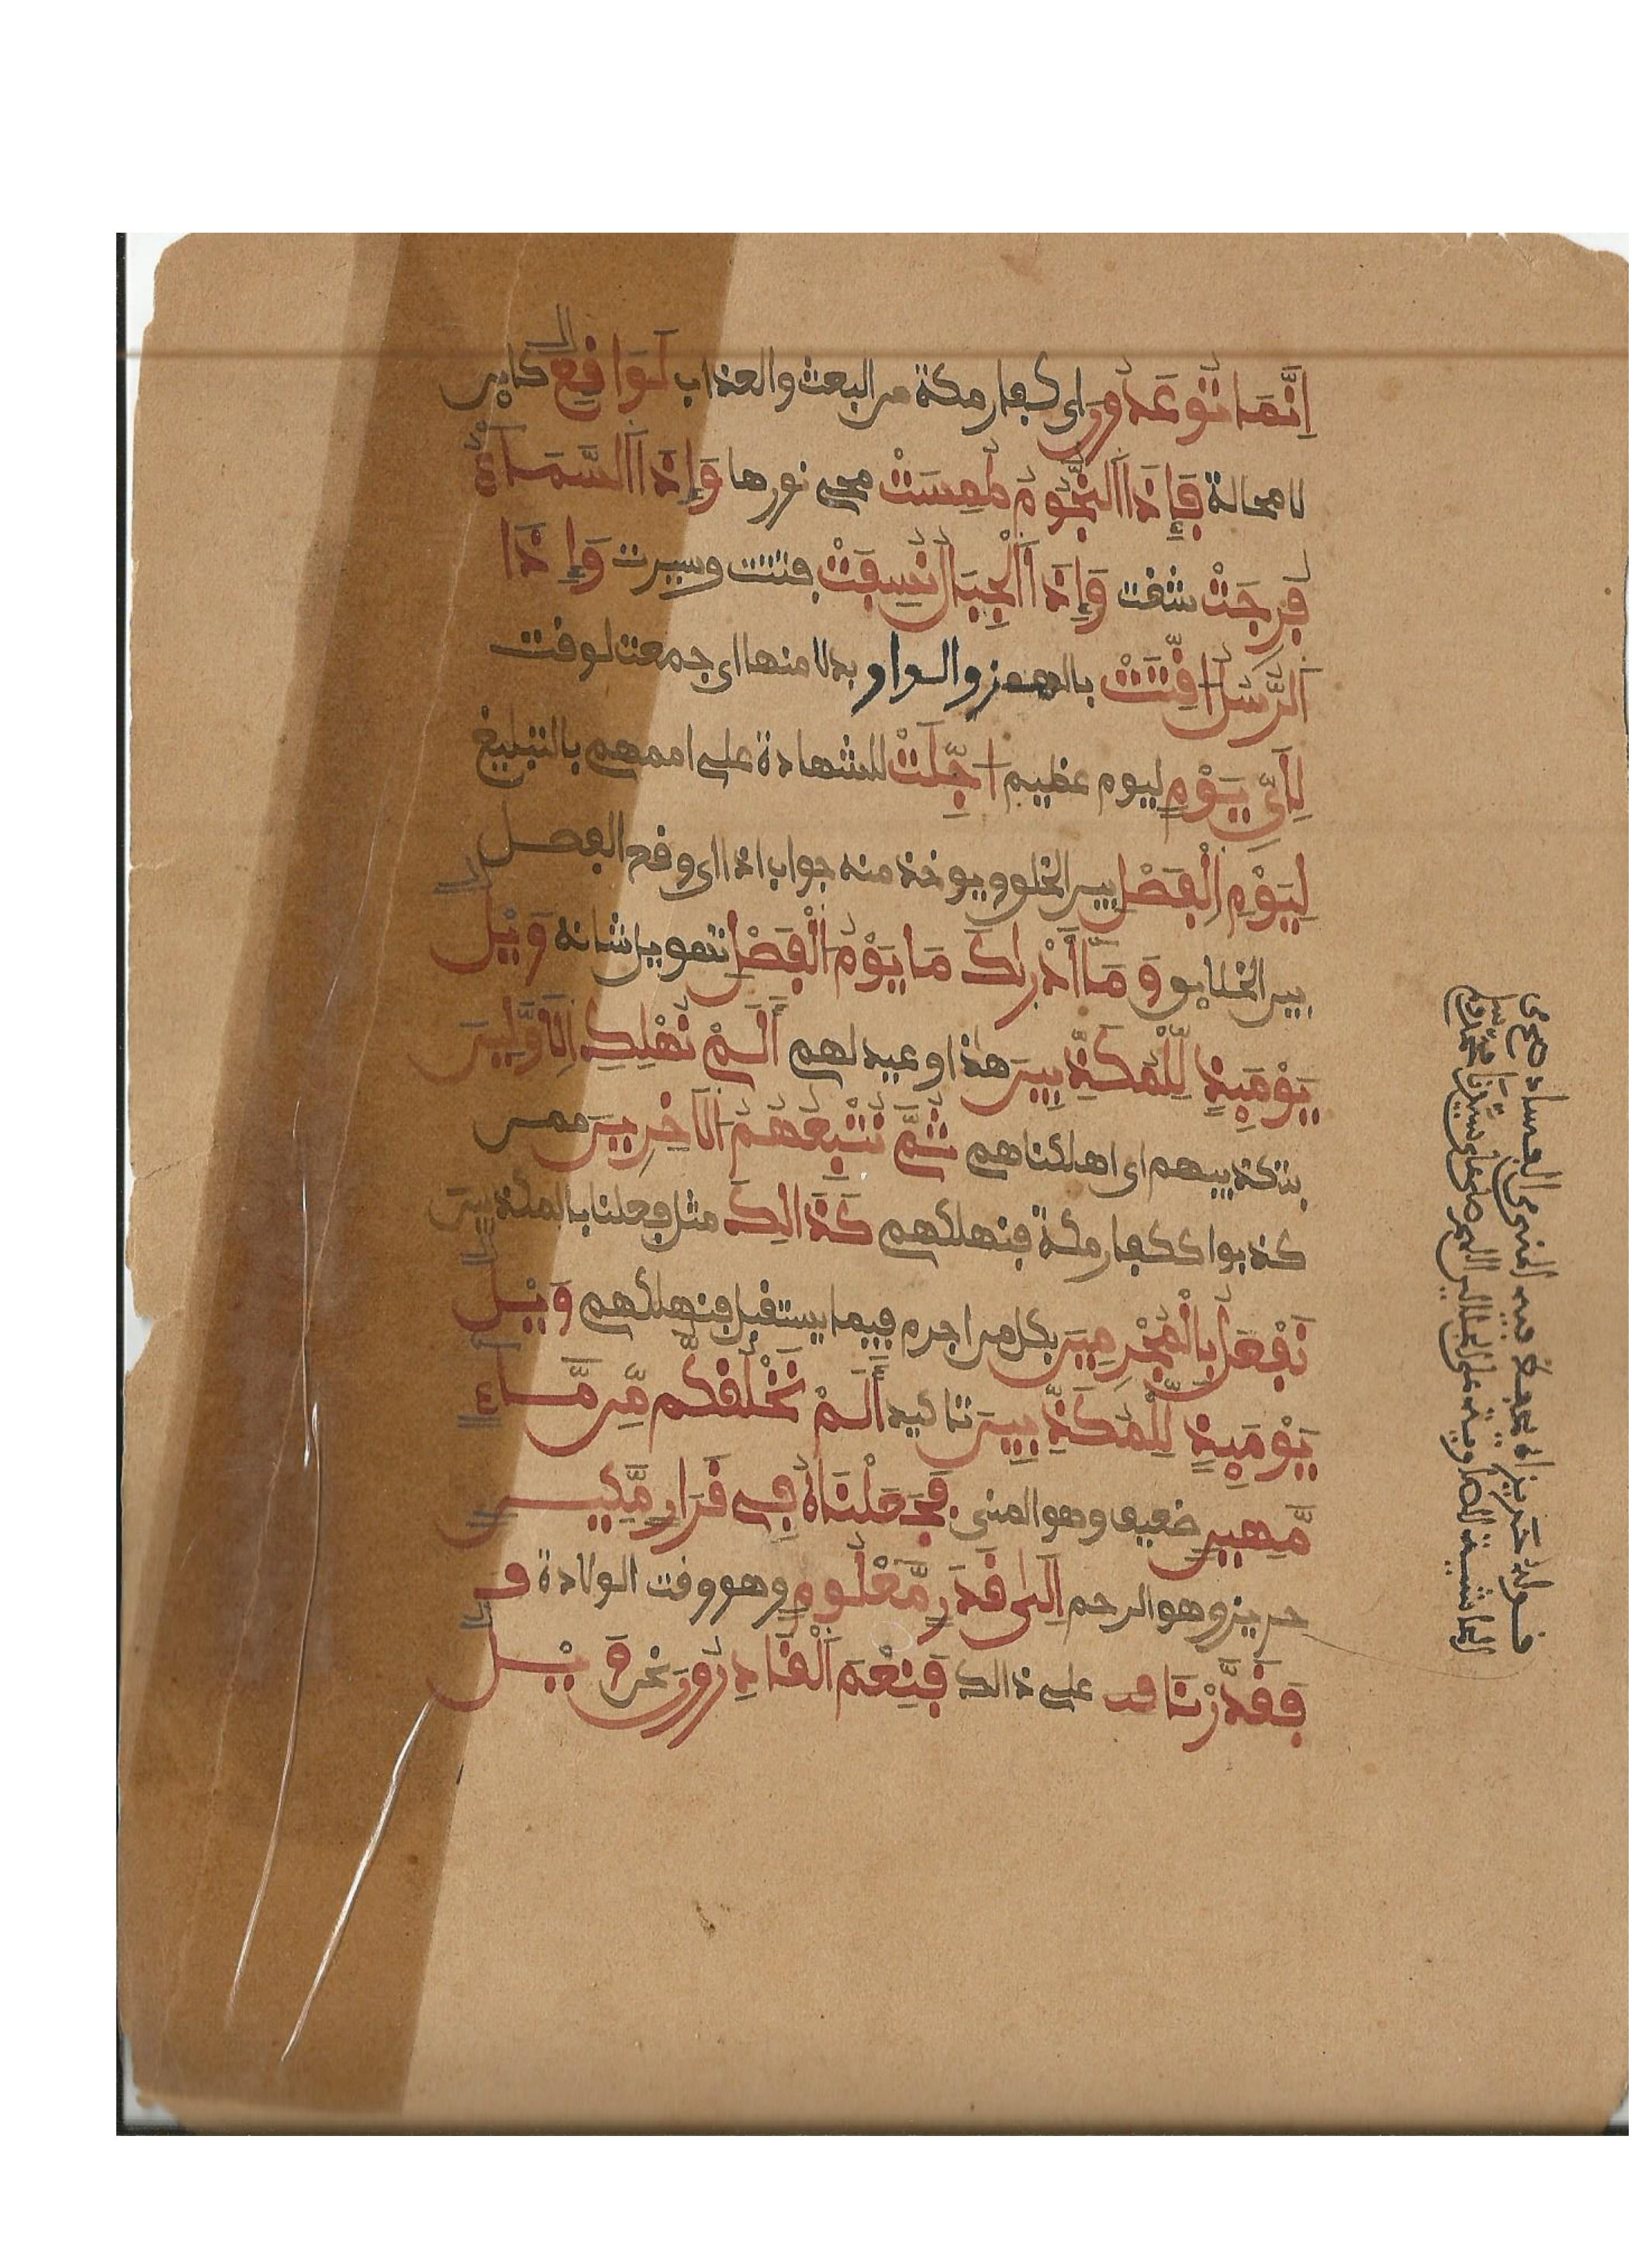 إِنَّمَا تُوعَدُونَ اى كفار مكة من البعث والعذاب لَوَاقِعٌ كاين
لا محالة فَإِذَا اَلنُّجُومُ طُمِسَتْ محى نورها وَإِذَا اَلسَّمَاءُ
فُرِجَتْ شقت وَإِذَا اَلْجِبَالُ نُسِفَتْ فتتت وسيرت وَإِذَا
اَلرُّسُلُ أُقِّتَتْ بالهمز والواو بدلا منها اى جمعت لوقت
لِأَىِّ يَوْمٍ ليوم عظيم أُجِّلَتْ للشهادة على اممهم بالتبليغ
لِيَوْمِ اِلْفَصْلِ بين الخلق ويوخذ منه جواب اذا اى وقع الفصل
بين الخلايق وَمَا أَدْرَاكَ مَا يَوْمُ اَلْفَصْلِ تهويل شانه وَيْلٌ
يَوْمَئِذٍ لِّلْمُكَذِّبِينَ هذا وعيد لهم أَلَمْ نُهْلِكِ اِلَاوَّلِينَ
بتكذيبهم اى اهلكناهم ثُمَّ نُتْبِعُهُمُ اَلَاخِرِينَ ممن
كذبوا ككفار مكة فنهلكهم كَذَالِكَ مثل فعلنا بالمكذبين
نَفْعَلُ بِالْمُجْرِمِينَ بكل من اجرم فيما يستقبل فنهلكهم وَيْلٌ
يَوْمَئِذٍ لِّلْمُكَذِّبِينَ تاكيد أَلَمْ نَخْلُقكُّم مِّن مَّاءٍ
مَّهِينٍ ضعيف وهو المنى فَجَعَلْنَاهُ فِى قَرَارٍ مَّكِينٍ
حريز وهو الرحم اِلَىٰ قَدَرٍ مَّعْلُومٍ وهو وقت الولادة
فَقَدَّرْنَا على ذالك فَنِعْمَ اَلْقَادِرُونَ نحن وَيْلٌ
قوله حريز اى يحفظ فيه المنى من الفساد